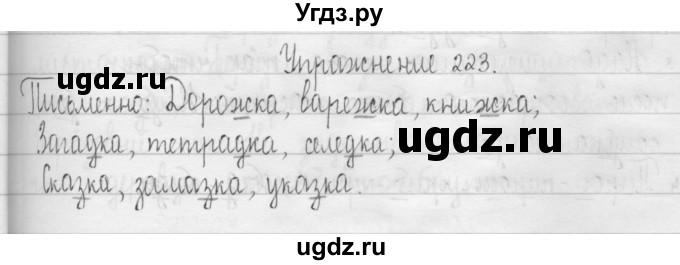 Угдз.ру
Упражнение 223.
ugdz.ru
Письменно: Дорожка, варежка, книжка;
Загадка, тетрадка, селедка;
ugdz.ru
Сказка, замазка, указка
ugdz.ru